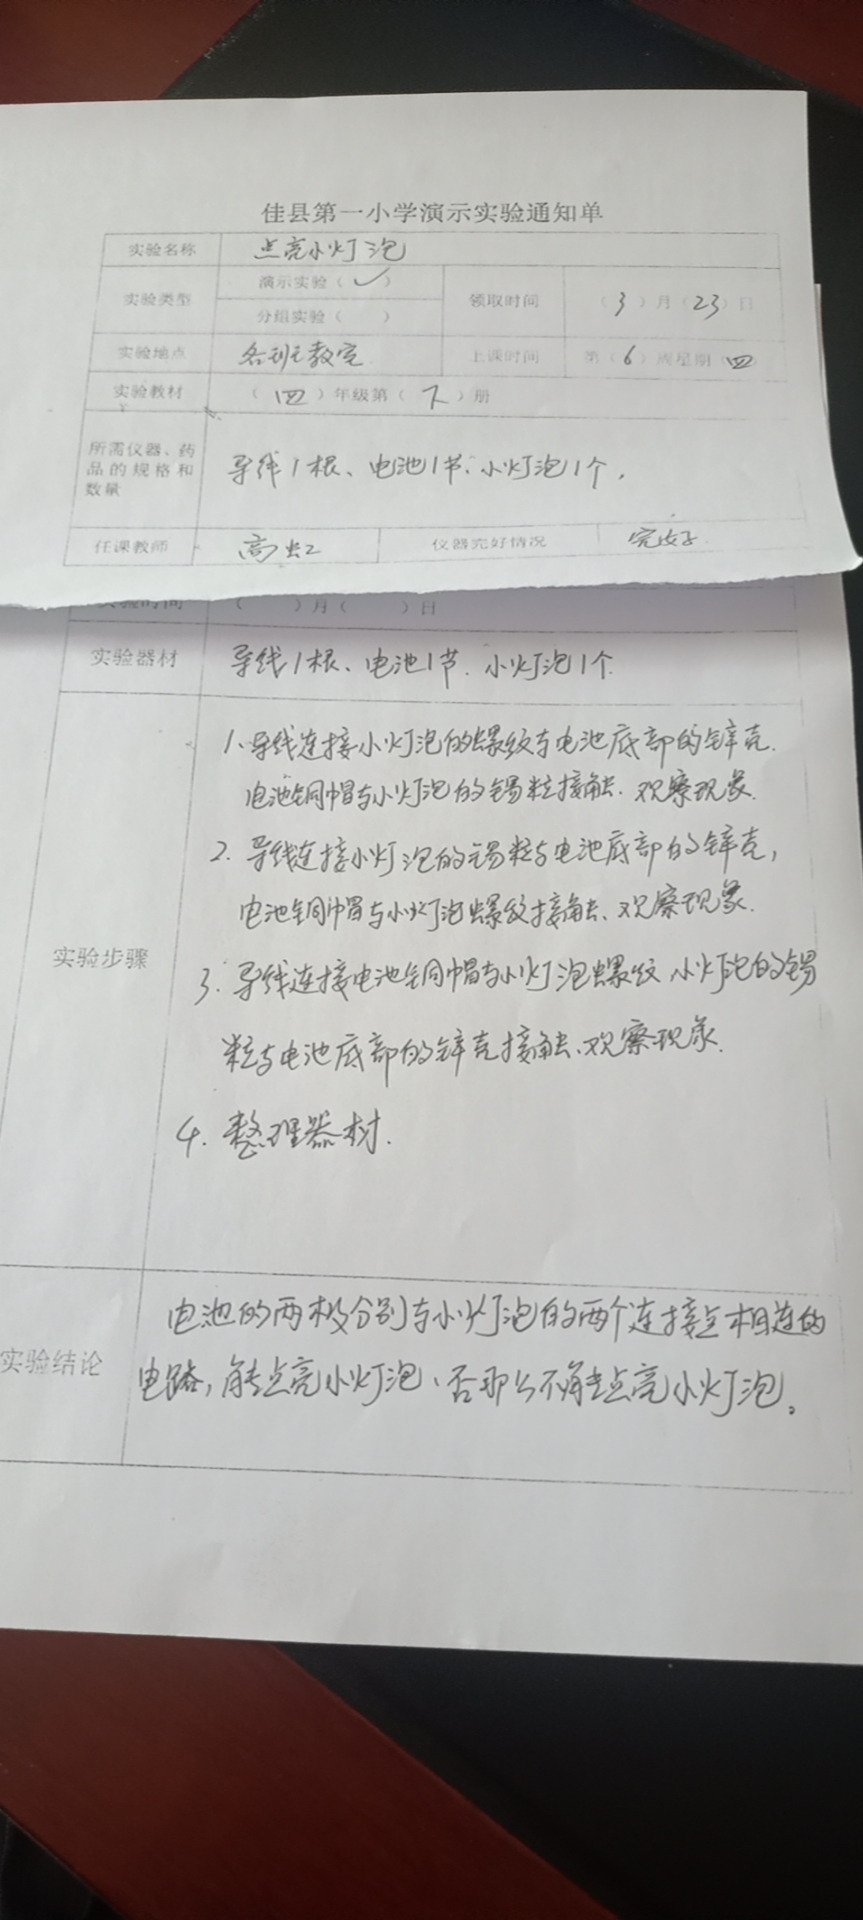 佳县第一小学演示实验通知单
实验名称 点亮小灯泡
实验类型 演示实验（✓） 领取时间 （3）月（23）日
分组实验（ ）
实验地点 各班教室 上课时间 第（6）周星期（四）
实验教材 （四）年级第（下）册
所需仪器、药
品的规格和
数量
导线1根、电池1节、小灯泡1个.
任课教师 高虹 仪器完好情况 完好
实验时间 （ ）月（ ）日
实验器材 导线1根、电池1节、小灯泡1个
实验步骤
1、导线连接小灯泡的螺纹与电池底部的锌壳.
电池铜帽与小灯泡的锡粒接触、观察现象.
2. 导线连接小灯泡的锡粒与电池底部的锌壳，
电池铜帽与小灯泡螺纹接触、观察现象.
3. 导线连接电池铜帽与小灯泡螺纹 小灯泡的锡
粒与电池底部的锌壳接触、观察现象.
4. 整理器材.
实验结论
电池的两极分别与小灯泡的两个连接点相连的
电路，能点亮小灯泡、否那么不能点亮小灯泡。